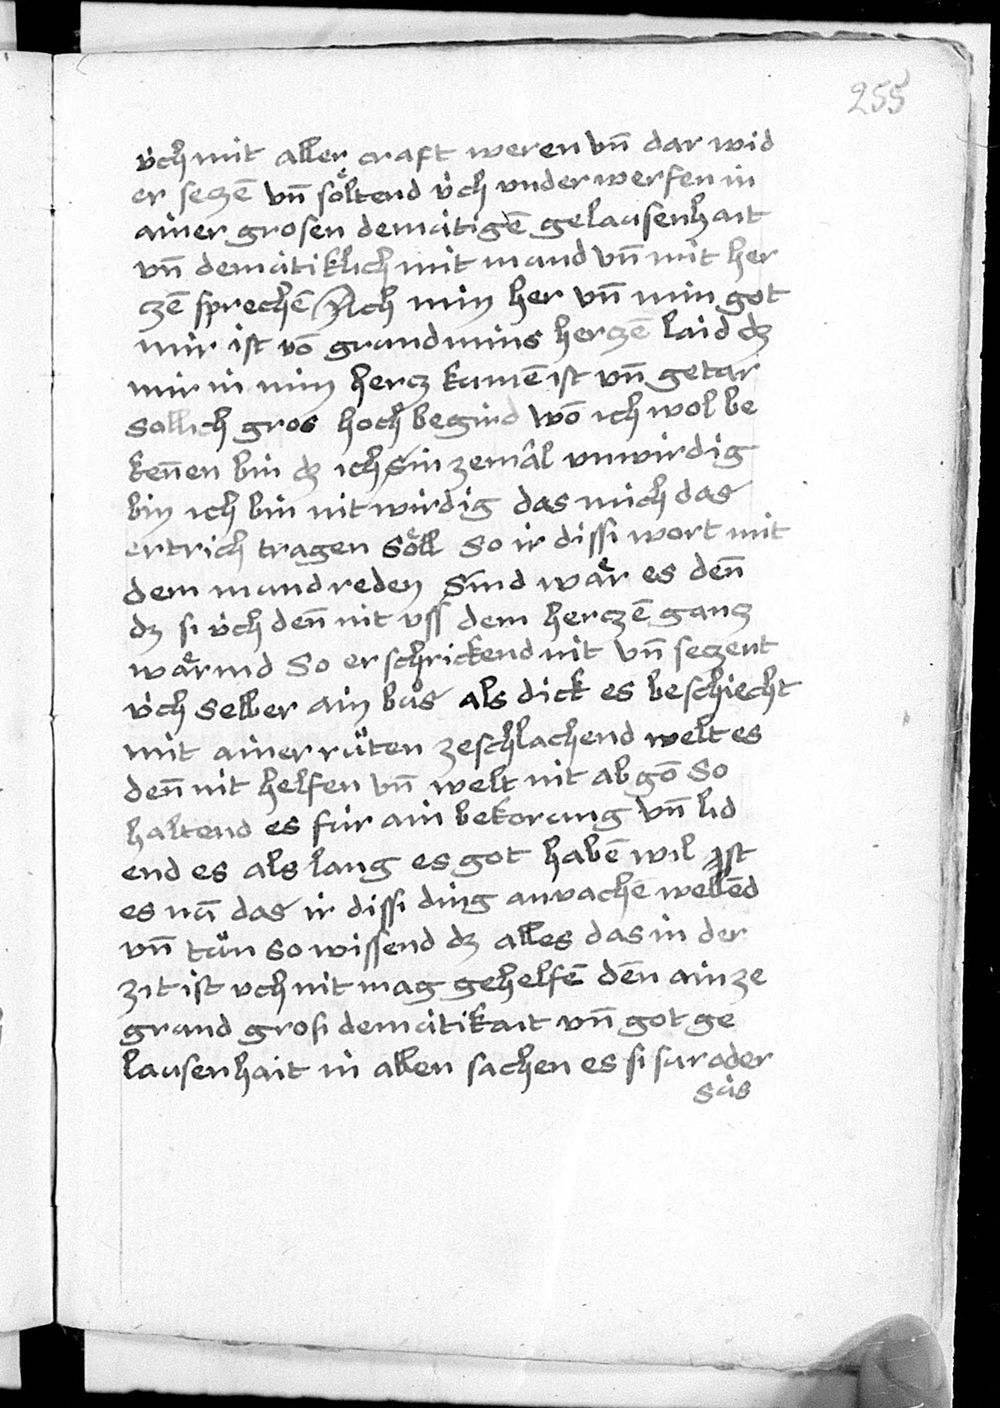 255
v̇ch mit aller craft weren vn̄ dar wid
er seczē vn̄ sőltend v̇ch vnder werfen in
ainer grosen demu̇tigē gelausenhait
vn̄ demu̇tiklich mit mund vn̄ mit her
czē sprechē Ach min her vn̄ min got
mir ist vō grund mins herczē laid dz
mir in min hercz kumē ist vn̄ getar
sollich gros hoch begird wō ich wol be
ken̄en bin dz ich sin zemâl vnwirdig
bin ich bin nit wirdig das mich das
ertrich tragen sőll So ir dissi wort mit
dem mund reden Sind wăr es den̄
dz si v̇ch den̄ nit vss dem herczē gancz
wărind So erschrickend nit vn̄ seczent
v̇ch selber ain bu̇s als dick es beschiecht
mit ainer rűten zeschlachend welt es
den̄ nit helfen vn̄ welt nit ab gō So
haltend es fu̇r ain bekorung vn̄ lid
end es als lang es got habē wil Ist
es nu̇ das ir dissi ding anvachē wellēd
vn̄ tűn so wissend dz alles das in der
zit ist v̇ch nit mag gehelfē dēn ain ze
grund grosi demu̇tikait vn̄ got ge
lausenhait in allen sachen es si sur ader
su̇s